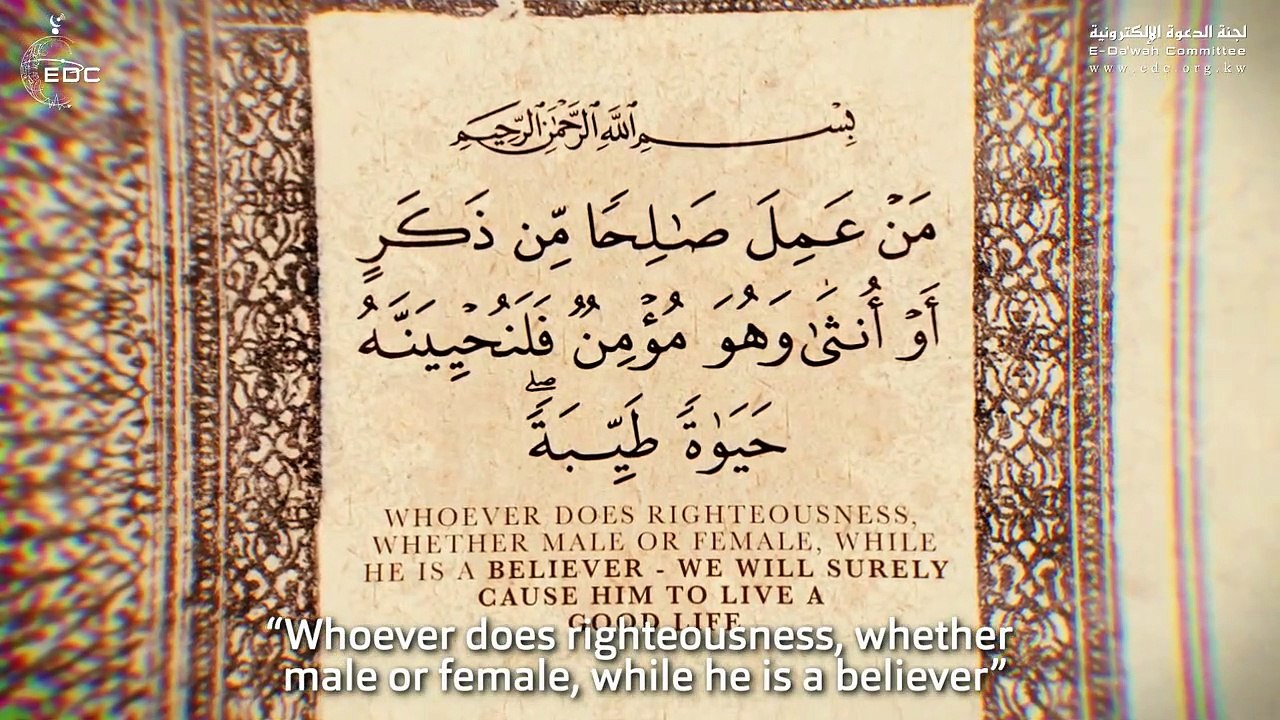 EDC
لجنة الدعوة الإلكترونية
E-Da'wah Committee
www.edc.org.kw
بِسْمِ ٱللَّهِ ٱلرَّحْمَٰنِ ٱلرَّحِيمِ
مَنْ عَمِلَ صَٰلِحًا مِّن ذَكَرٍ
أَوْ أُنثَىٰ وَهُوَ مُؤْمِنٌ فَلَنُحْيِيَنَّهُۥ
حَيَوٰةً طَيِّبَةً ۖ
WHOEVER DOES RIGHTEOUSNESS,
WHETHER MALE OR FEMALE, WHILE
HE IS A BELIEVER - WE WILL SURELY
CAUSE HIM TO LIVE A
GOOD LIFE
“Whoever does righteousness, whether
male or female, while he is a believer”